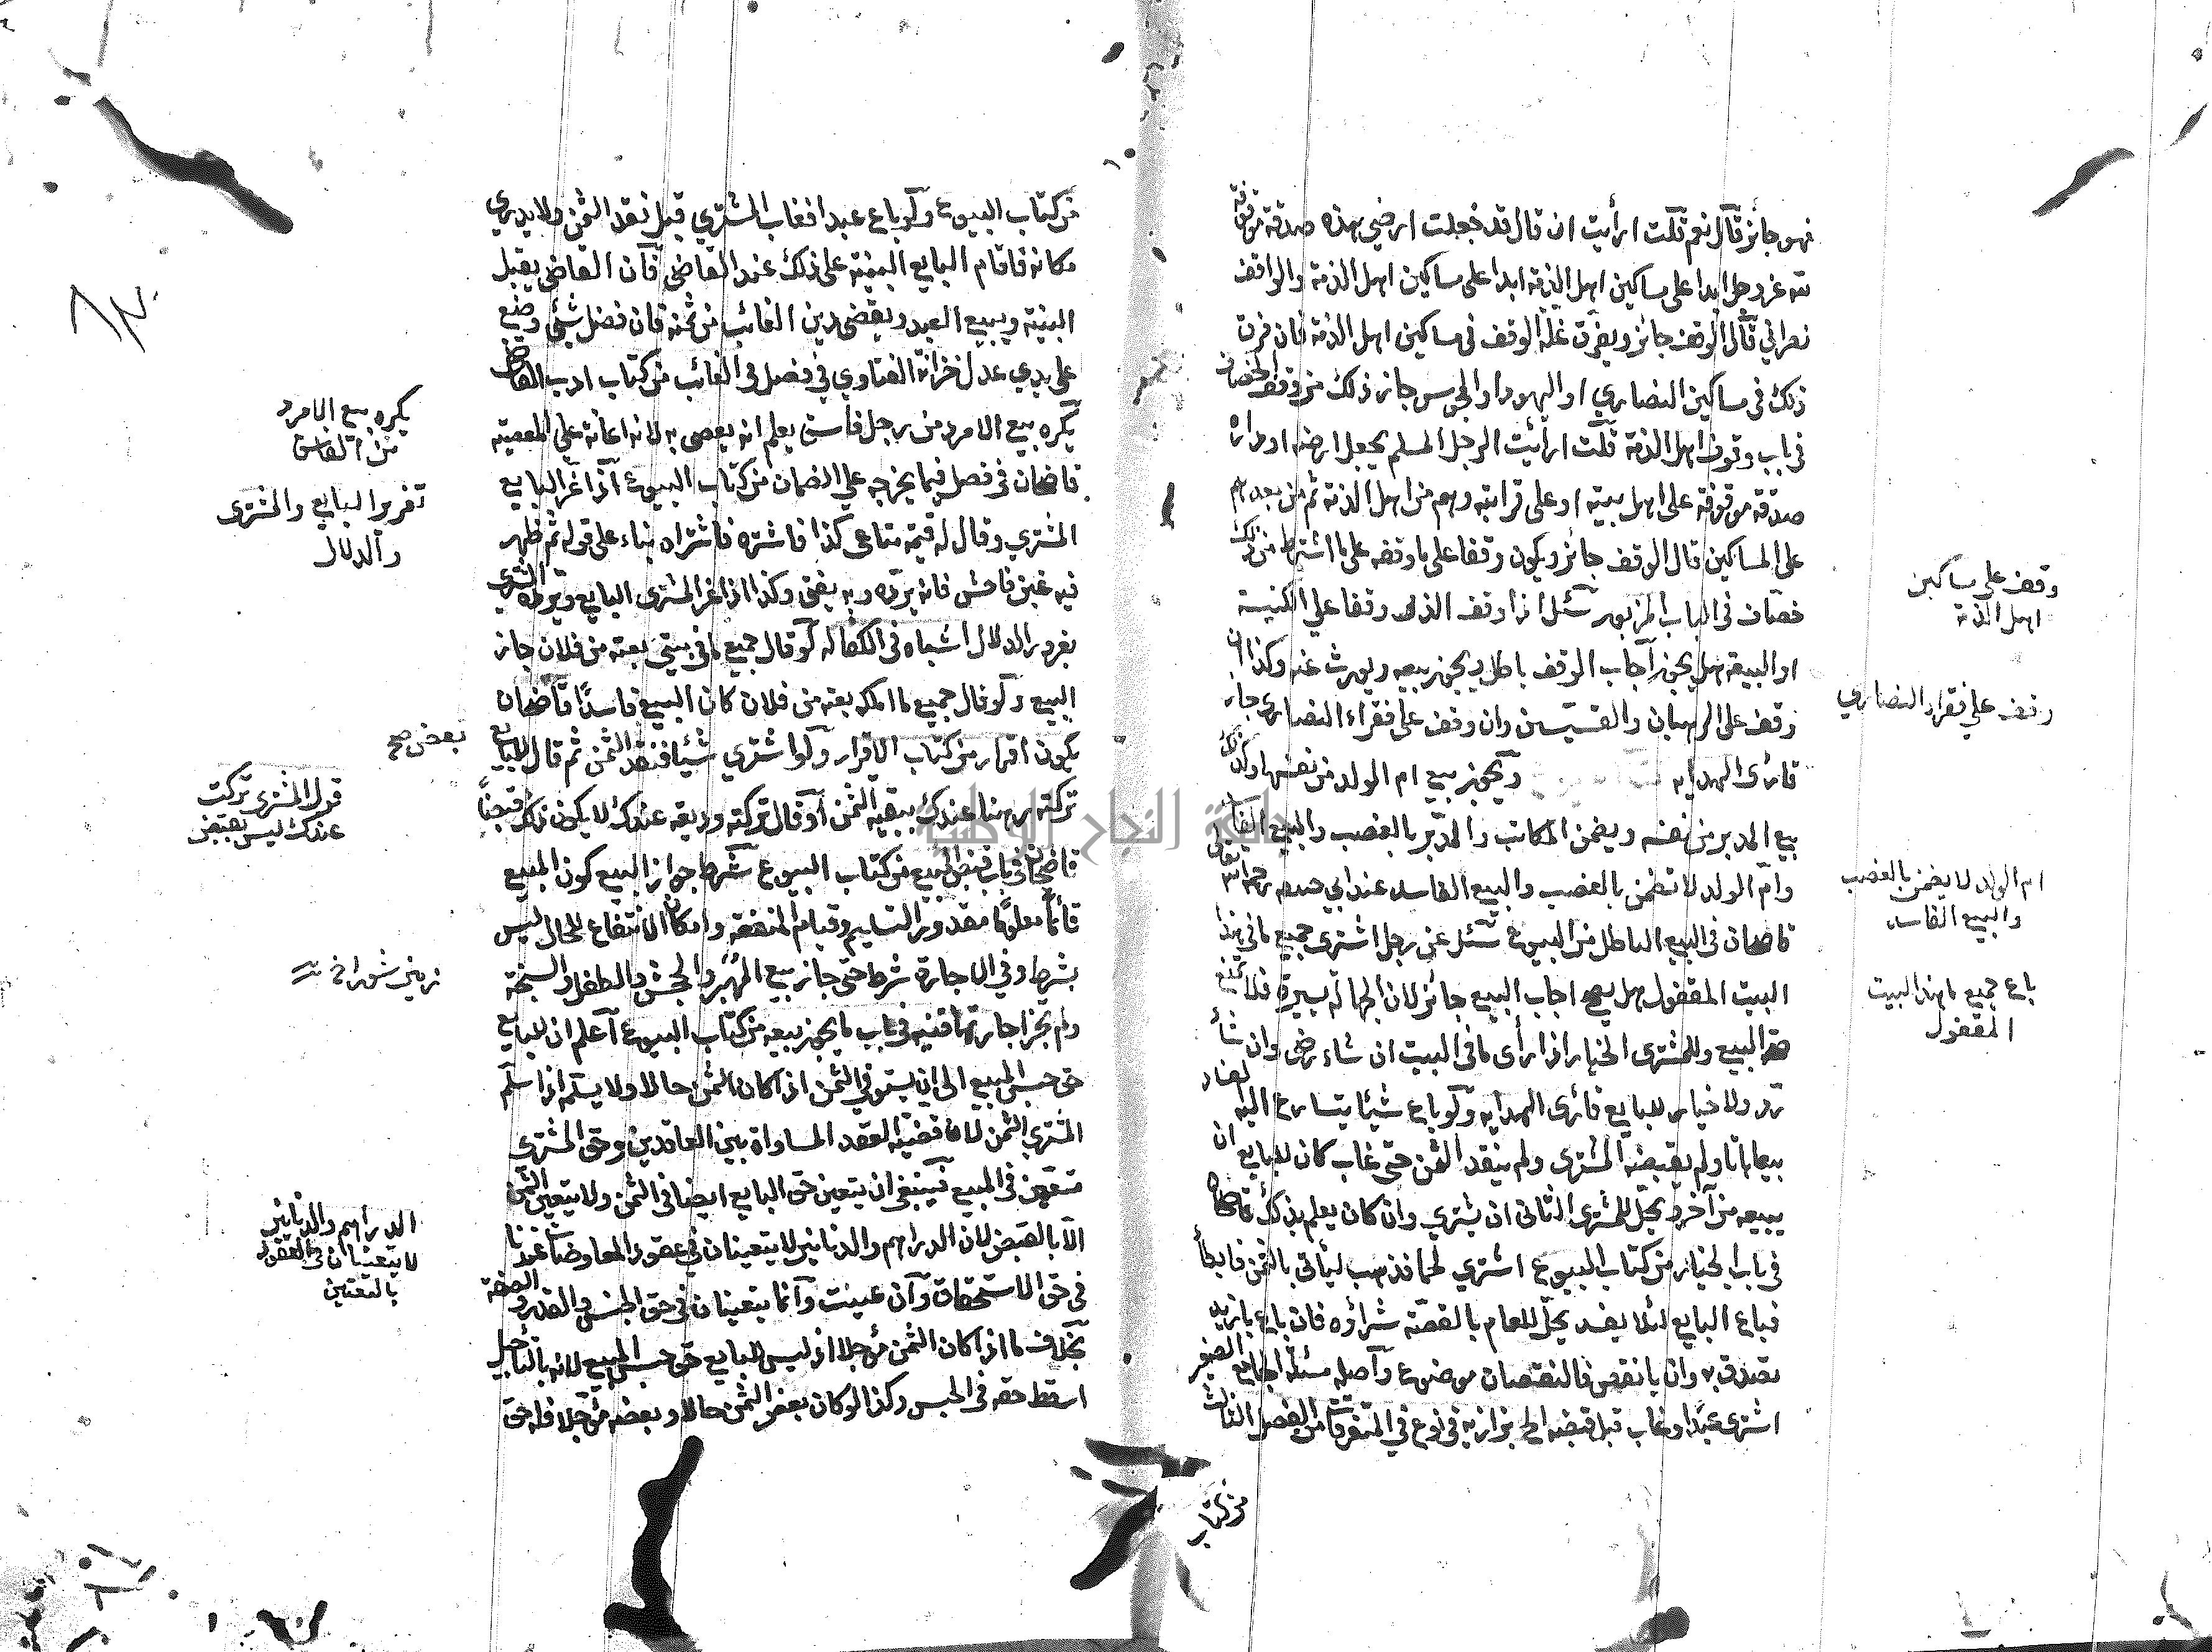 فهو جائز قال نعم قلت ارأيت ان قال قد جعلت ارضي هذه صدقة موقوفة
لله عز وجل ابدا على مساكين اهل الذمة ابدا على مساكين اهل الذمة والواقف
نصراني قال الوقف جائز ويفرق غلة الوقف في مساكين اهل الذمة فان فرق
ذلك في مساكين النصاري او اليهود او المجوس جاز ذلك من وقف الخصاف
في باب وقوف اهل الذمة قلت ارأيت الرجل المسلم يجعل ارضه او داره
صدقة موقوفة على اهل بيته او على قرابته وهم من اهل الذمة ثم من بعدهم
على المساكين قال الوقف جائز ويكون وقفا على ما وقفه على ما اشترط من ذلك
خصاف في الباب المزبور سئل اذا وقف الذمي وقفا على الكنيسة
او البيعة هل يجوز اجاب الوقف باطل ويجوز بيعه ويورث عنه وكذا ان
وقف على الرهبان والقسيسين وان وقف على فقراء النصارى جاز
قارى الهدايه ويجوز بيع ام الولد من نفسها وكذلك
بيع المدبر من نفسه ويضمن المكاتب والمدبر بالغصب والبيع الفاسد
وام الولد لا تضمن بالغصب والبيع الفاسد عند ابي حنيفه رحمه الله تعالى
قاضيخان في البيع الباطل من البيوع سئل عن رجل اشترى جميع ما في هذا
البيت المقفول هل يصح اجاب البيع جائز لان الجهالة يسيرة فلا تمنع
صحة البيع وللمشترى الخيار اذا رأى ما في البيت ان شاء رضي وان شاء
رد ولا خيار للبايع قارى الهدايه ولو باع شيئا يتسارع اليه الفساد
بيعا باتا ولم يقبضه المشترى ولم ينقد الثمن حتى غاب كان للبايع ان
يبيعه من آخر ويحل للمشترى الثاني ان يشتري وان كان يعلم بذلك قاضيخان
في باب الخيار من كتاب البيوع اشتري لحما فذهب ليأتي بالثمن فابطأ
فباع البايع لئلا يفسد يحل للعام بالقصة شراؤه فان باع بازيد
تصدق به وان بانقص فالنقصان موضوع واصله مسئلة الجامع الصغير
اشترى عبدا وغاب قبل قبضه الخ بزازيه في نوع في المتفرقات من الفصل الثالث
من كتاب
وقف على مساكين
اهل الذمة
وقف على فقراء النصاري
ام الولد لا يضمن بالغصب
والبيع الفاسد
باع جميع ما بهذا البيت
المقفول
من كتاب البيوع ولو باع عبدا فغاب المشتري قبل نقد الثمن ولا يدري
مكانه فاقام البايع البينة على ذلك عند القاضي فان القاضي يقبل
البينة ويبيع العبد ويقضي دين الغائب من ثمنه فان فضل شئ وضع
على يدي عدل خزانة الفتاوي في فصل في الغائب من كتاب ادب القاضي
يكره بيع الامرد من رجل فاسق يعلم انه يعصى به لانه اعانة على المعصية
قاضيخان في فصل فيما يخرجه على الضمان من كتاب البيوع اذا غر البايع
المشتري وقال له قيمة متاعي كذا فاشتره فاشتراه بناء على قوله ثم ظهر
فيه غبن فاحش فانه يرده وبه يفتى وكذا اذا غر المشترى البايع ويرده المشتري
بغرور الدلال اشباه في الكفالة لو قال جميع ما في بيتي بعته من فلان جاز
البيع ولو قال جميع ما املكه بعته من فلان كان البيع فاسدا قاضيخان
يكون اقرار من كتاب الاقرار ولو اشتري شيئا فنقد الثمن ثم قال للبايع
تركته رهنا عندك ببقية الثمن او قال تركته وديعه عندك لا يكون ذلك قبضا
قاضيخان في باب قبض المبيع من كتاب البيوع شرط جواز البيع كون المبيع
قائما معلوما مقدور التسليم وقيام المنفعة وامكان الانتفاع للحال ليس
بشرط وفي الاجارة شرط حتى جاز بيع المهر والجحش والطفل والسبخة
ولم يجز اجارتها قنيه في باب ما يجوز بيعه من كتاب البيوع اعلم ان للبايع
حق حبس المبيع الى ان يستوفي الثمن اذا كان الثمن حالا ولا يسلمه اذا سلم
المشتري الثمن لان قضية العقد المساواة بين العاقدين وحق المشترى
متعين في المبيع فينبغي ان يتعين حق البايع ايضا في الثمن ولا يتعين الثمن
الا بالقبض لان الدراهم والدنانير لا يتعينان في عقود المعاوضات عندنا
في حق الاستحقاق وان عينت وانما يتعينان في حق الجنس والقدر والصفة
بخلاف ما اذا كان الثمن مؤجلا اذ ليس للبايع حق حبس المبيع لانه بالتأجيل
اسقط حقه في الحبس وكذا لو كان بعض الثمن حالا وبعضه مؤجلا فله حق
يكره بيع الامرد
من الفاسق
تغرير البايع والمشترى
والدلال
بعض صح
قول المشترى تركت
عندك ليس بقبض
الدراهم والدنانير
لا يتعينان في العقود
بالتعيين
جامعة النجاح الوطنية